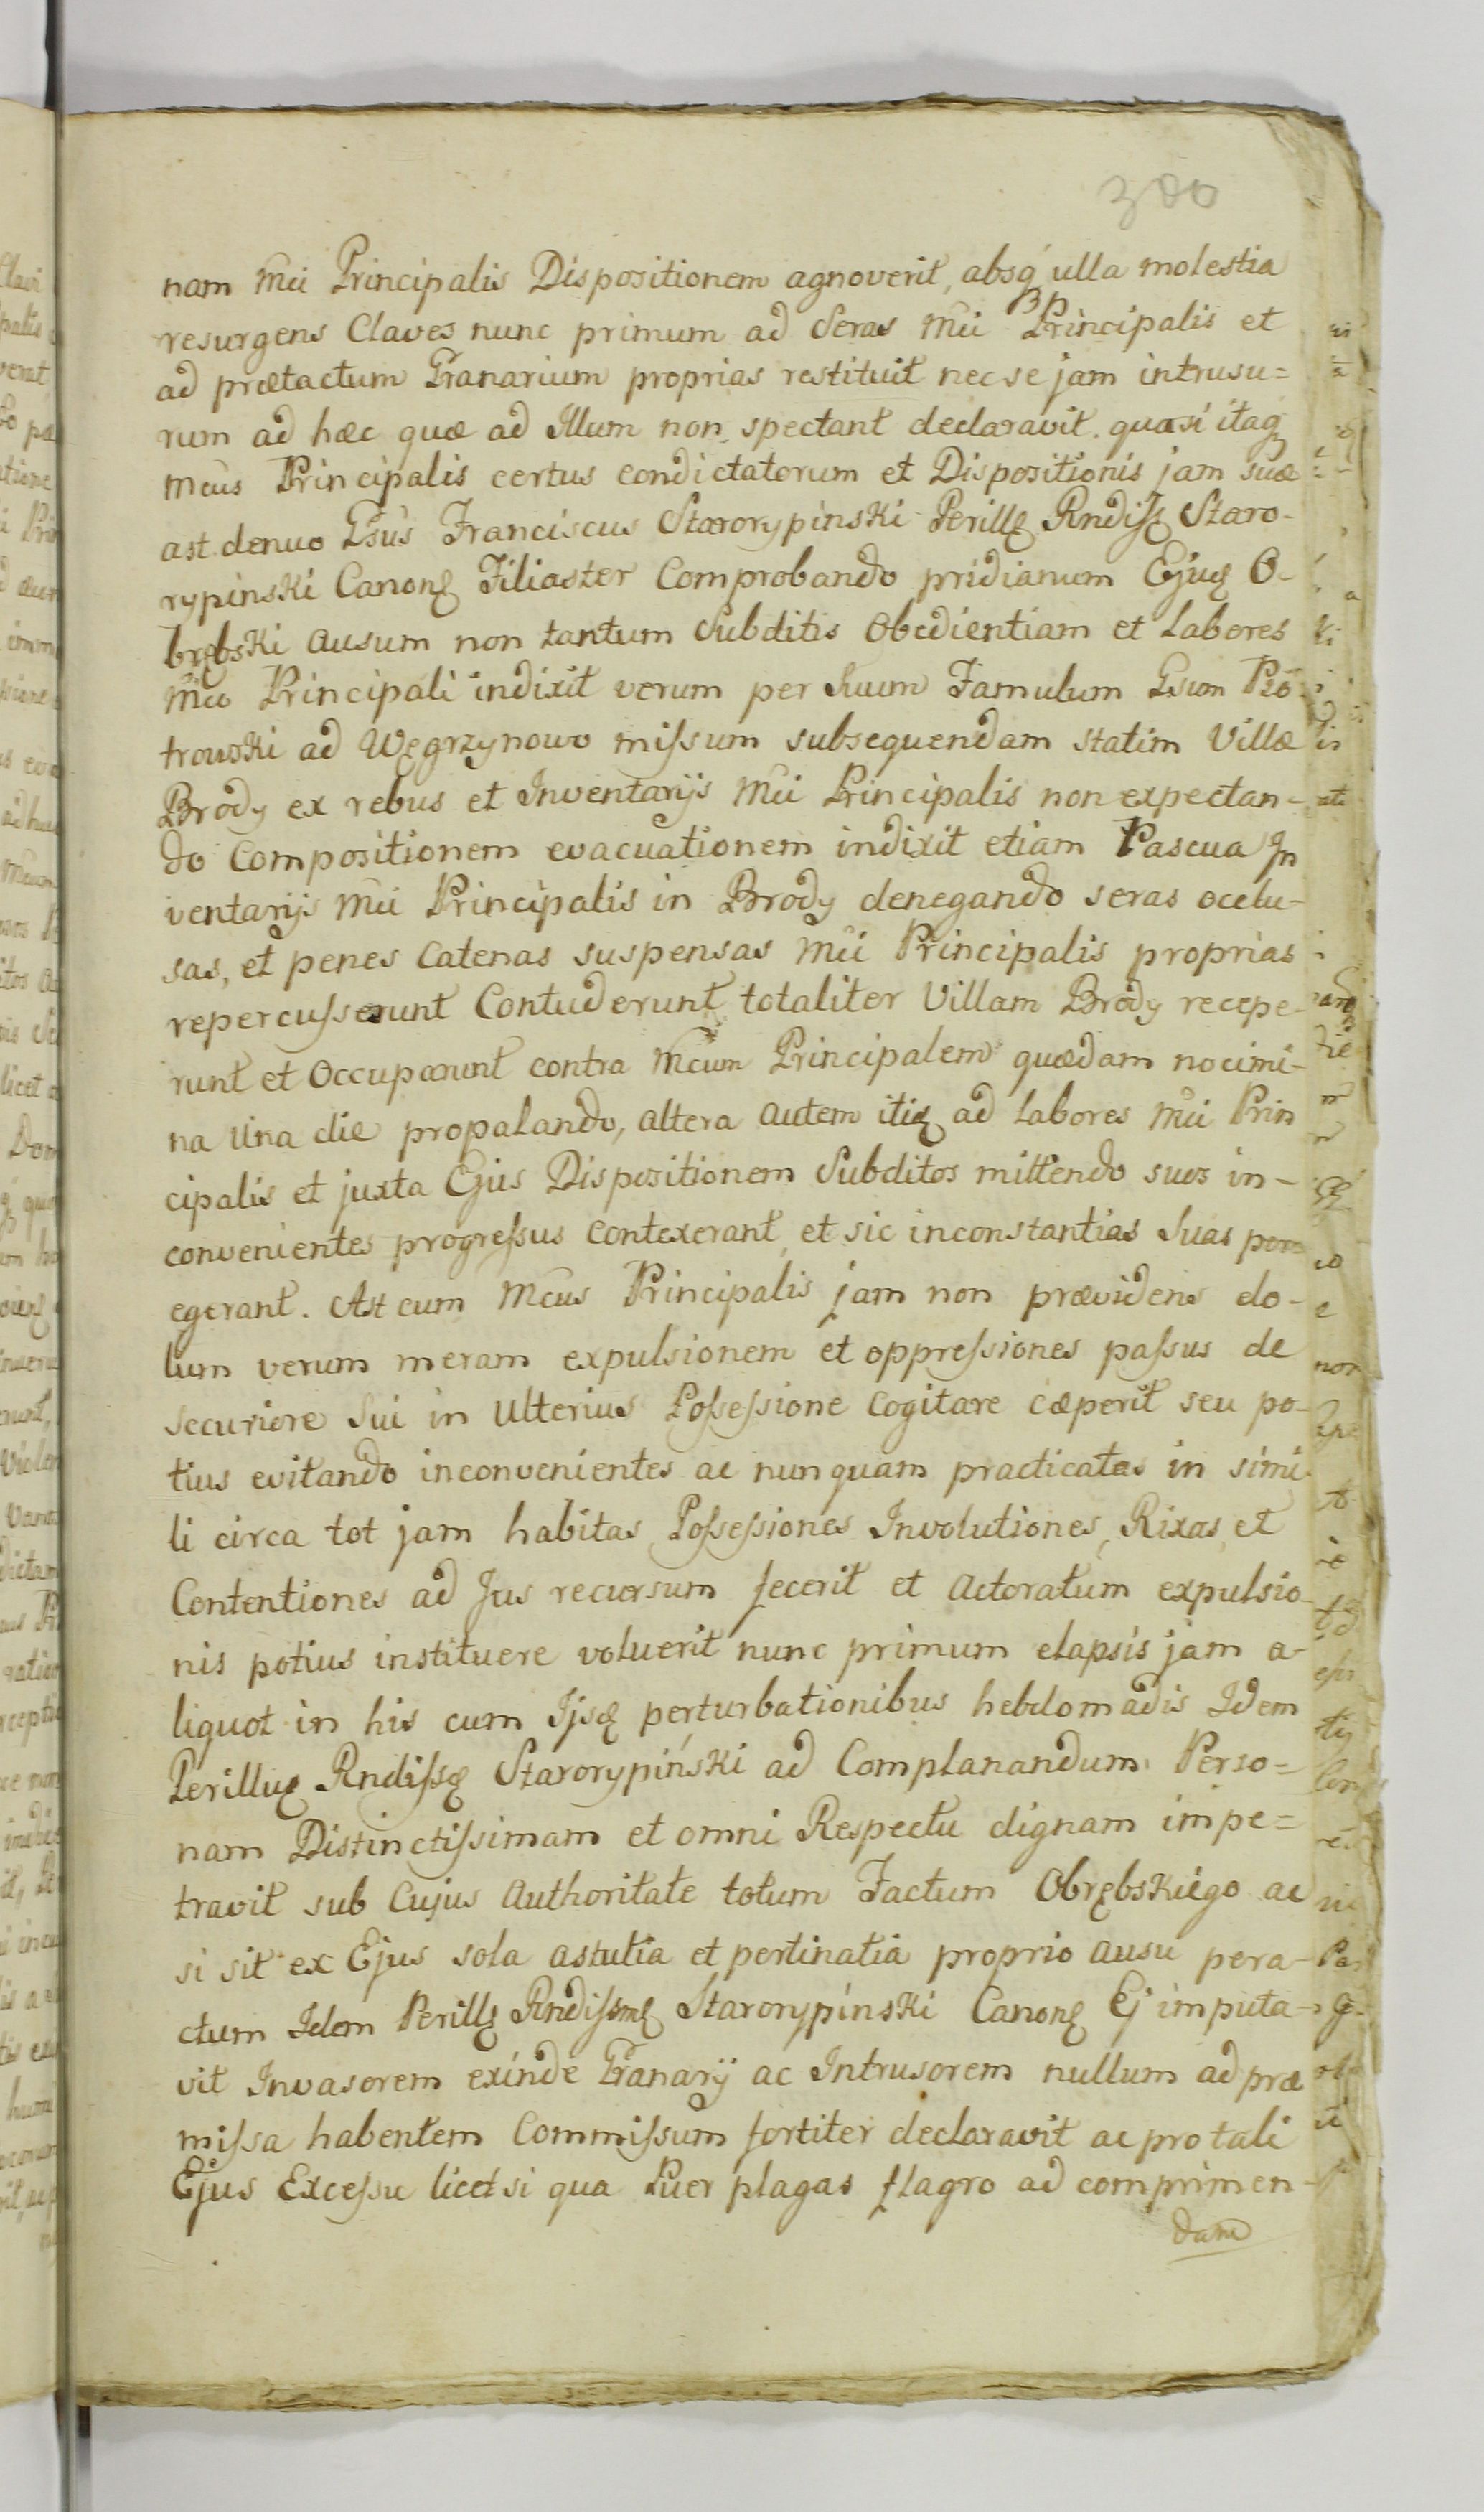 300
nam Mei Principalis Dispositionem agnoverit, absq ulla molestia
resurgens Claves nunc primum ad Seras Mei Principalis et
ad prætactum Granarium proprias restituit nec se jam intrusu=
rum ad hæc quæ ad Illum non spectant declaravit. quasi itaq
Meus Principalis certus condictatorum et Dispositionis jam suæ
ast denuo Gsus Franciscus Starorypinski Perillę Rndissę Staro-
rypinski Canonę Filiaster Comprobando pridianum Ejuę O-
brębski ausum non tantum Subditis Obedientiam et Labores
Meo Principali indixit verum per Suum Famulum Gsum Pio-
trowski ad Węgrzynowo missum subsequendam statim Villæ
Brody ex rebus et Inventarijs Mei Principalis non expectan-
do Compositionem evacuationem indixit etiam Pascua In
ventarijs Mei Principalis in Brody denegando seras occlu-
sas, et penes Catenas suspensas Mei Principalis proprias
repercusserunt Contuderunt totaliter Villam Brody recepe-
runt et Occuparunt contra Meum Principalem quædam nocimi-
na Una die propalando, altera autem itię ad Labores Mei Prin
cipalis et juxta Ejus Dispositionem Subditos mittendo suos in-
convenientes progressus contexerant, et sic inconstantias Suas per
egerant. Ast cum Meus Principalis jam non prævidens do-
lum verum meram expulsionem et oppressiones passus de
securiore Sui in Ulterius Possessione Cogitare cæperit seu po-
tius evitando inconvenientes ac nunquam practicatas in simi
li circa tot jam habitas Possessiones Involutiones, Rixas, et
Contentiones ad Jus recursum fecerit et Actoratum expulsio-
nis potius instituere voluerit nunc primum elapsis jam a-
liquot in his cum Ijsę perturbationibus hebdomadis Idem
Perilluę Rndissę Starorypiński ad Complanandum Perso=
nam Distinctissimam et omni Respectu dignam impe=
travit sub Cujus Authoritate totum Factum Obrębskiego ac
si sit ex Ejus sola astutia et pertinatia proprio ausu pera-
ctum Idem Perillę Rndissmę Starorypinski Canonę Ej imputa-
vit Invasorem exinde Granarij ac Intrusorem nullum ad præ
missa habentem Commissum fortiter declaravit ac pro tali
Ejus Excessu licet si qua Puer plagas flagro ad comprimen-
dam